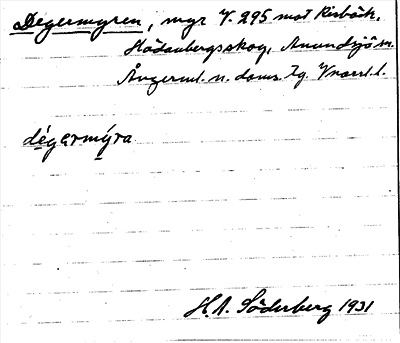 Degermyren, myr V. 295 mot Risbäck,
Hädanbergsskog, Anundsjö sn.
Ångerml. n. doms. Tg Västl.
dégermýra
H.A. Söderberg 1931